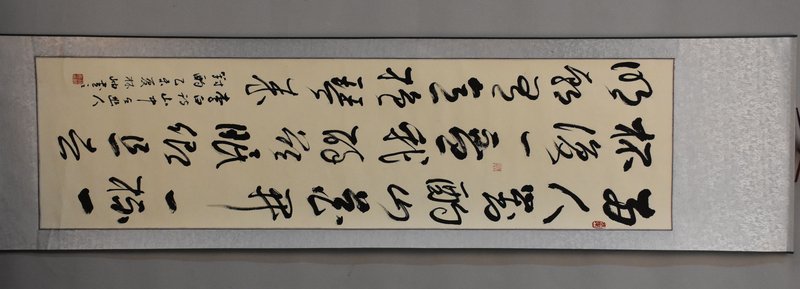 两人對酌山花開一杯一
杯復一杯我醉欲眠卿且去
明朝有意抱琴来
李白詩山中与幽人
對酌乙未夏